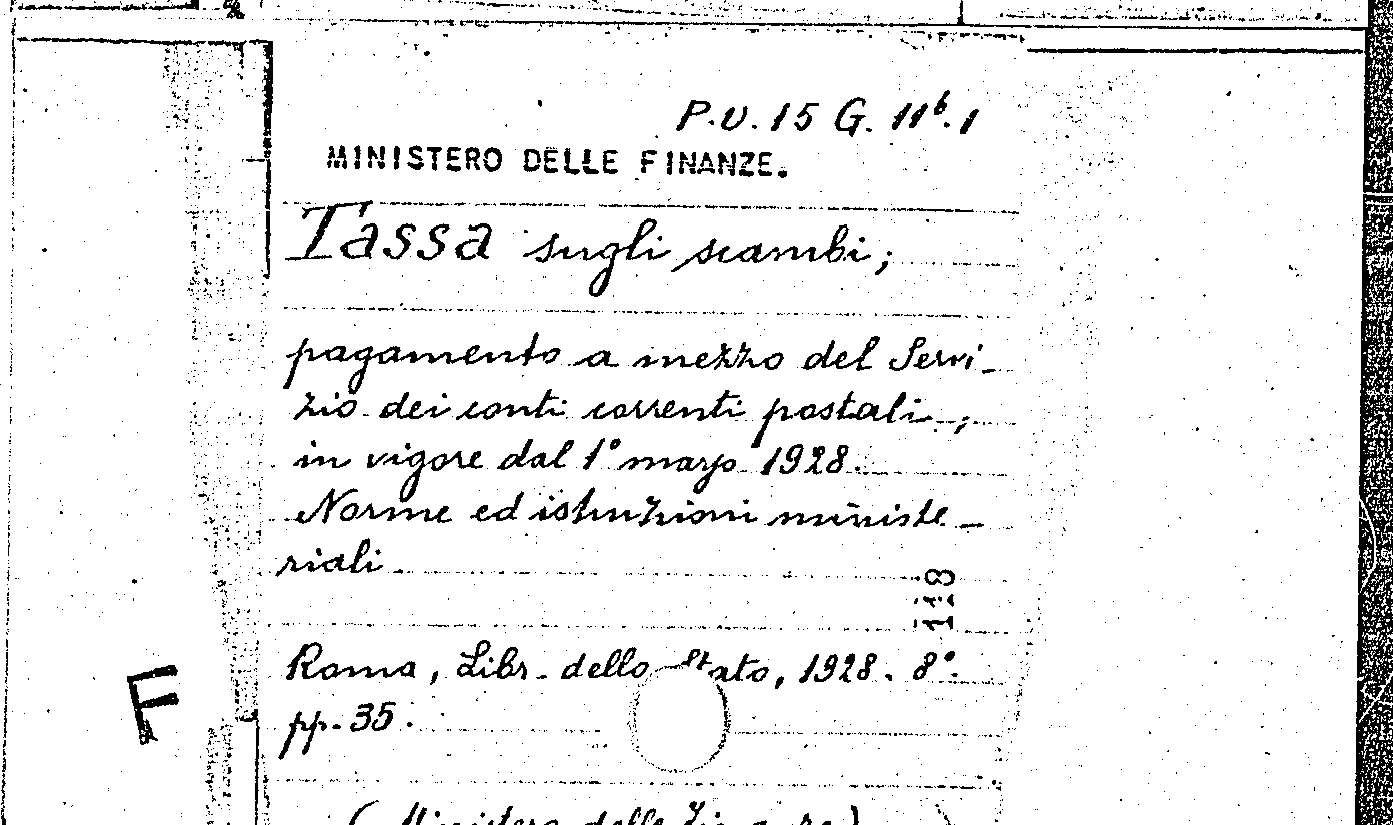 P.V. 15 G. 11⁶.1
MINISTERO DELLE FINANZE.
Tassa sugli scambi;
pagamento a mezzo del Servi-
zio dei conti correnti postali;
in vigore dal 1° marzo 1928.
Norme ed istruzioni ministe-
riali
118
Roma, Libr. dello Stato, 1928. 8°.
pp. 35.
F
(Ministero delle Finanze)